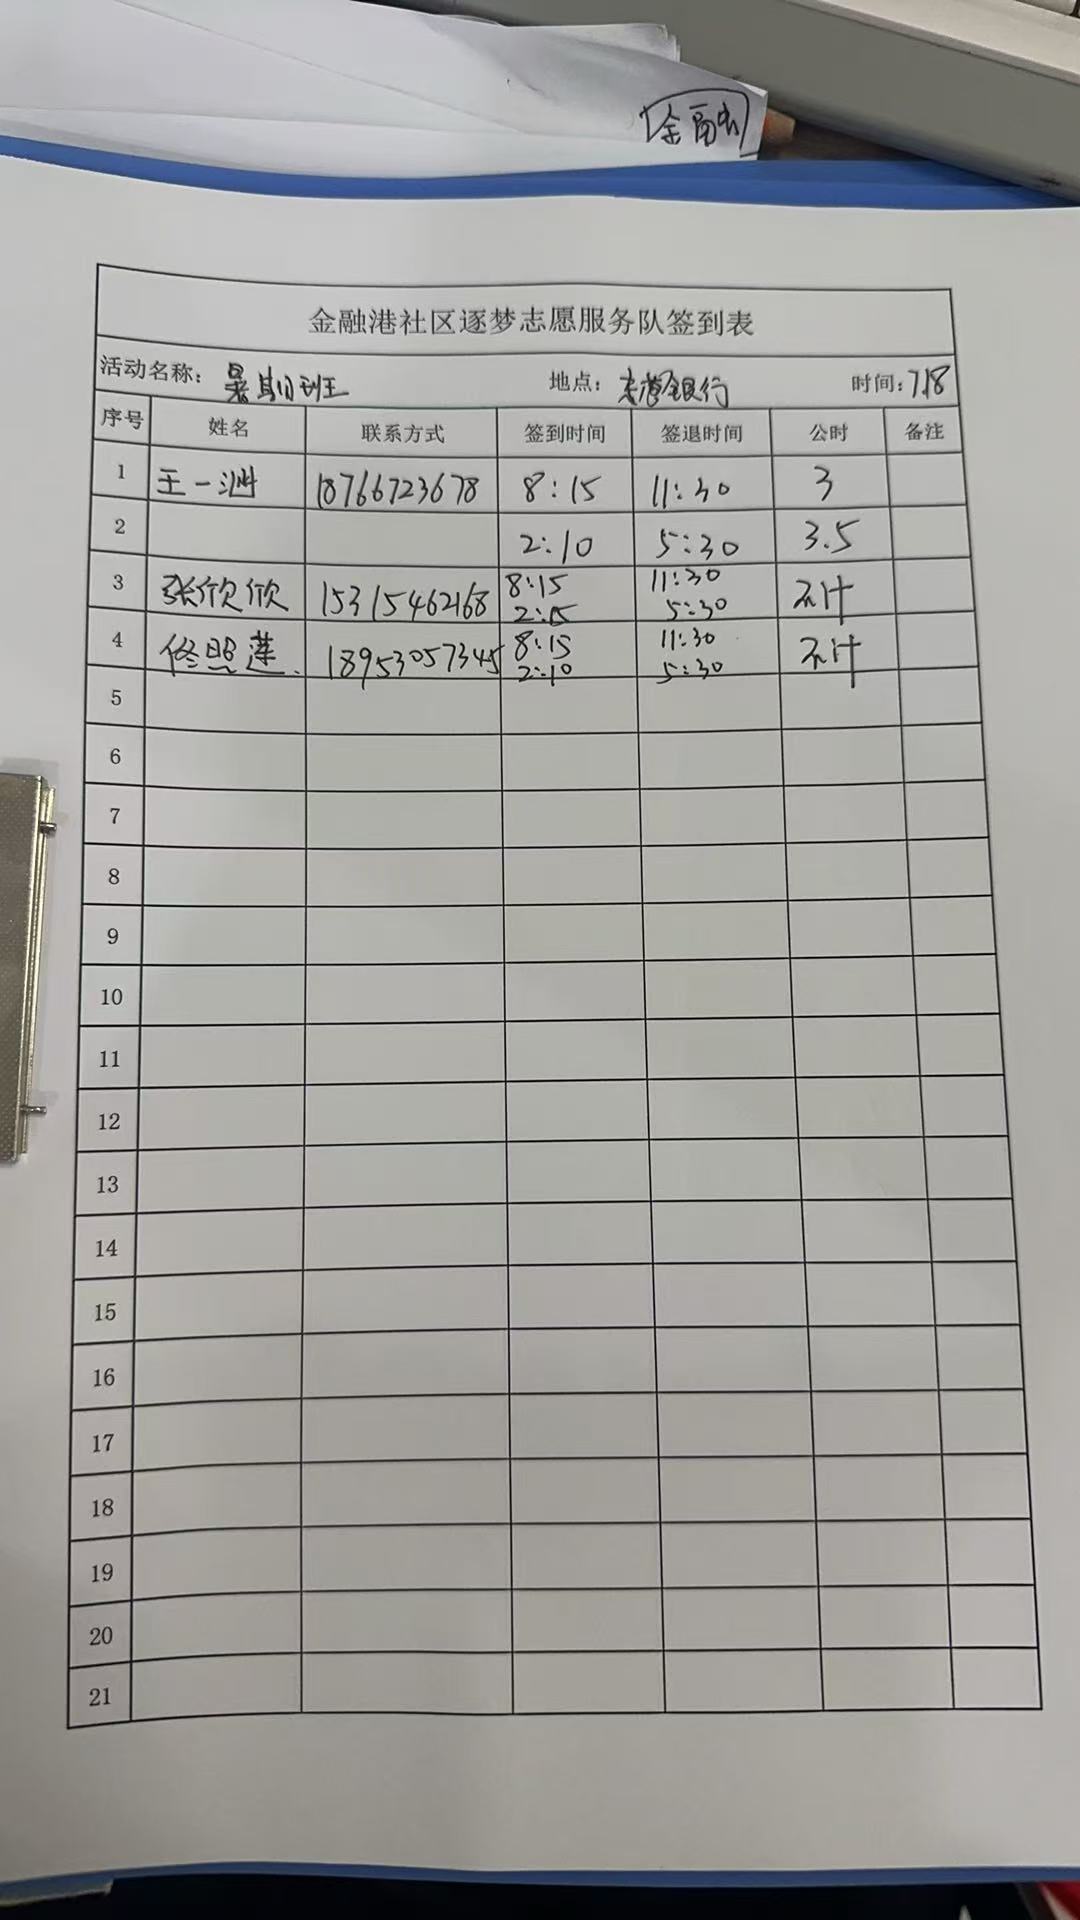 金融
金融港社区逐梦志愿服务队签到表
活动名称：暑期班 地点：银行 时间：7.18
序号 姓名 联系方式 签到时间 签退时间 公时 备注
1 王一 18766723678 8:15 11:30 3
2 2:10 5:30 3.5
3 张欣欣 15315462168 8:15 11:30 不计
2:15 5:30
4 佟照莲 18953057345 8:15 11:30 不计
2:10 5:30
5
6
7
8
9
10
11
12
13
14
15
16
17
18
19
20
21